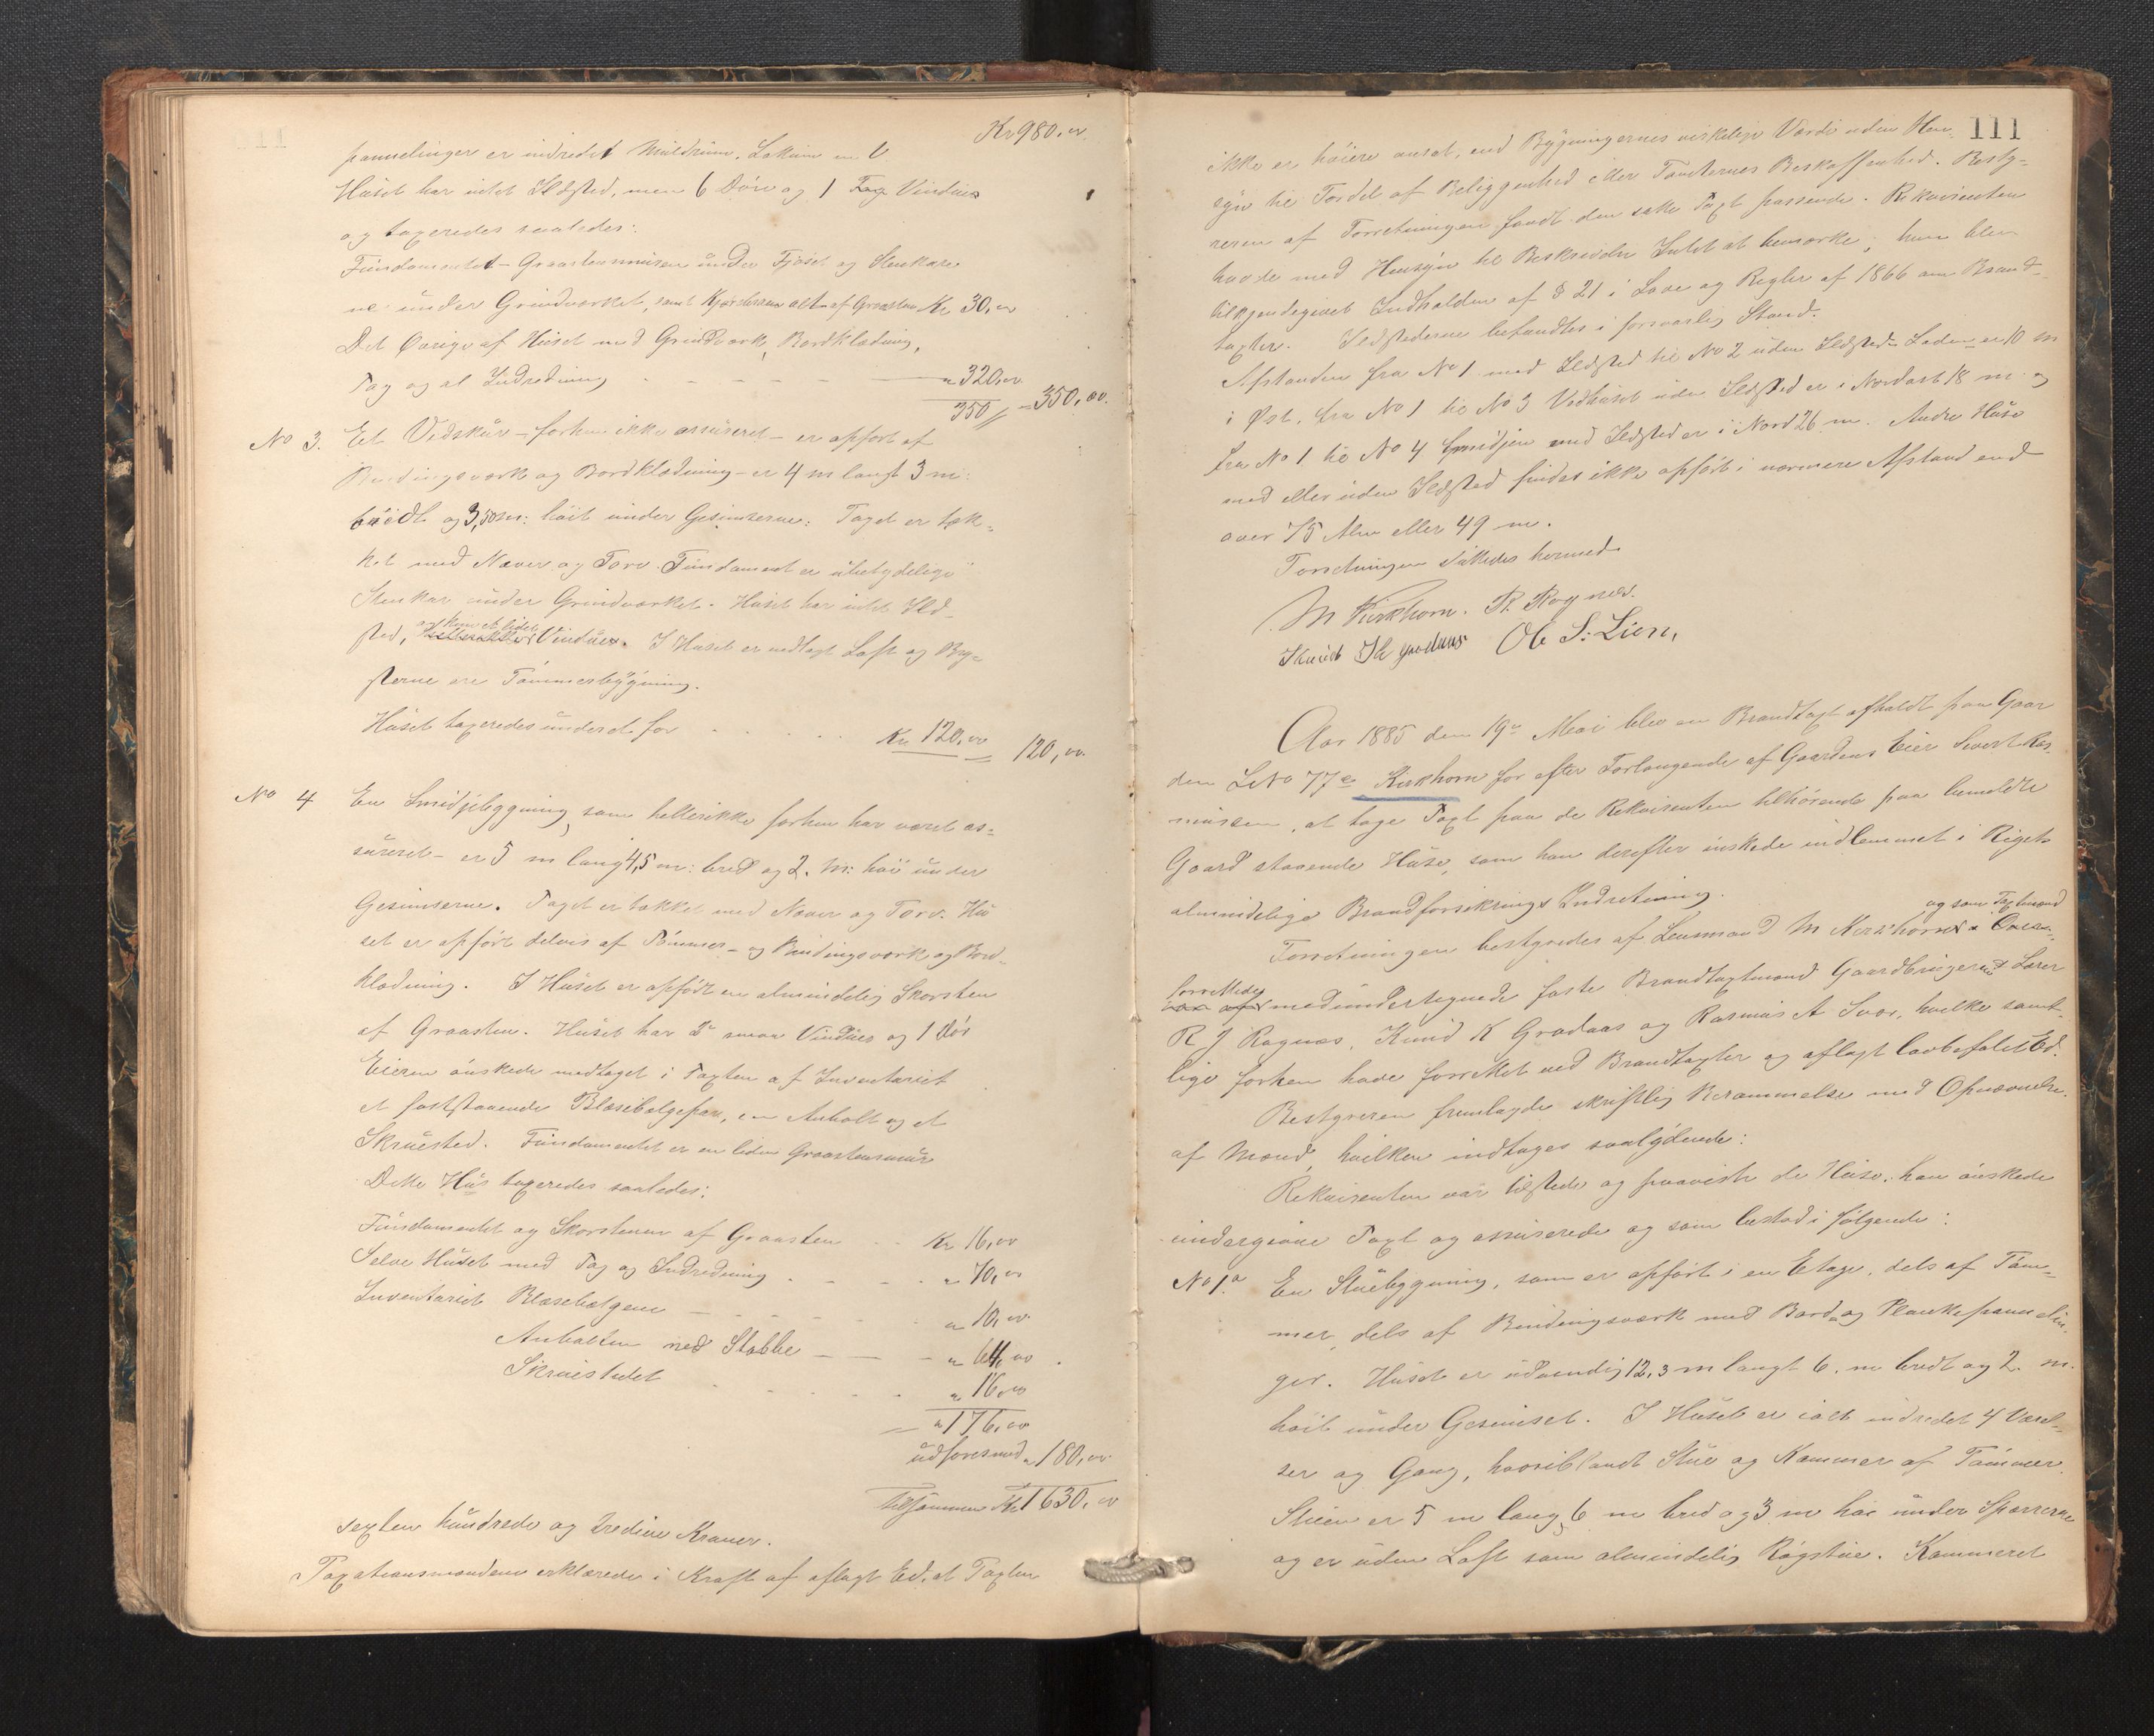 Kr 980,00
pannelinger er indredet
Huset har intet Ildsted, men 6 Döre og 1 Fag Vindue
og taxeredes saaledes:
Fundamentet - Graastensmuren under Fjöset og Stenkare
ne under Grindværket, samt alt af Graasten Kr 30,00
Det Övrige af Huset med Grindværk, Bordklædning,
Tag og al Indredning - - - - - " 320,00
350 // = 350,00.
No 3. Et Vedskur - forhen ikke assureret - er opfört af
Bindingsværk og Bordklædning - er 4 m langt 3 m:
bredt og 3,50 m: höit under Gesimserne. Taget er tæk-
ket med Næver og Torv. Fundament er ubetydelige
Stenkar under Grindværket. Huset har intet Ild-
sted, og kun et lidet Vindue. I Huset er indlagt Loft og
sterne ere Tömmerbygning.
Huset taxeredes underet for - - - - - Kr 120,00 120,00.
No 4 En Smidjebygning, som hellerikke forhen har været as-
sureret - er 5 m lang 4,5 m: bred og 2. m: höi under
Gesimserne. Taget er tækket med Næver og Torv. Hu
set er opfört delvis af Tömmer- og Bindingsværk og Bord-
klædning. I Huset er opfödt en almindelig Skorsten
af Graasten. Huset har 2 smaa Vinduer og 1 Dör
Eieren önskede medtaget i Taxten af Inventariet
et faststaaende Blæsebælgepar, en Anbolt og et
Skruested. Fundamentet er en liden Graastensmur
Dette Hus taxeredes saaledes:
Fundamentet og Skorstenen af Graasten - - Kr 16,00
Selve Huset med Tag og Indredning - - - - " 70,00
Inventariet Blæsebælgene - - - - " 10,00
Anbolten med Stabbe - - - " 64,00
Skruestedet - - - - - " 16,00
" 176,00
udföres med " 180,00
Tilsammen Kr 1630,00
sexten hundrede og tredive Kroner.
Taxationsmændene erklærede i Kraft af aflagt Ed, at Taxten
111
ikke er höiere ansat, end Bygningernes virkelige Værdi uden Hen-
syn til Fordel af Beliggenhed eller Tomternes Beskaffenhed. Besty-
reren af Forretningen fandt den satte Taxt passende. Rekvirenten
havde med Hensyn til Beskrivelsen Intet at bemærke; han blev
tilkjendegivet Indholdet af § 21 i Love og Regler af 1866 om Brand-
taxter. Ildstederne befandtes i forsvarlig Stand.
Afstanden fra No 1 med Ildsted til No 2 uden Ildsted - Laden - er 10 m
i Öst, fra No 1 til No 3 Vedhuset uden Ildsted er i Nordost 18 m og
fra No 1 til No 4 Smidjen med Ildsted er i Nord 26 m. Andre Huse
med eller uden Ildsted findes ikke opfört i nærmere Afstand end
over 75 Alen eller 49 m.
Forretningen sluttedes hermed
M Kirkhorn. R. Ragnæs.
Knud K Grodaas Ole S. Lien.
Aar 1885 den 19de Mai blev en Brandtaxt afholdt paa Gaar
den LNo 77 Kirkhorn for efter Forlangende af Gaardens Eier Sivert Ras-
mussen, at tage Taxt paa de Rekvirenten tilhörende paa bemeldte
Gaard staaende Huse, som han derefter önskede indlemmet i Rigets
almindelige Brandforsikrings Indretning.
og som Taxtmænd
Forretningen bestyredes af Lensmand M Kirkhorn
forrettede medundertegnede faste Brandtaxtmænd Gaardbruger og Lærer
R J Ragnæs, Knud K Grodaas og Rasmus A Svor, hvilke samt-
lige forhen have forrettet ved Brandtaxter og aflagt lovbefalet Ed.
Bestyreren fremlagde skriftlig Berammelse med Opnævnelse
af Mænd, hvilken indtages saalydende:
Rekvirenten var tilstede og paaviste de Huse, han önskede
undergivne Taxt og assurerede og som bestod i fölgende:
No 1. En Stuebygning, som er opfört i en Etage, dels af Töm-
mer, dels af Bindingsværk med Bord og Plankepannelin-
ger. Huset er udvendig 12,3 m langt 6. m bredt og 2. m.
höit under Gesimset. I Huset er ialt indredet 4 Værel-
ser og Gang, hvoriblandt Stue og Kammer af Tömmer.
Stuen er 5 m lang 6 m bred og 3 m höi under Sparrerne
og er uden Loft som almindelig Rögstue. Kammeret